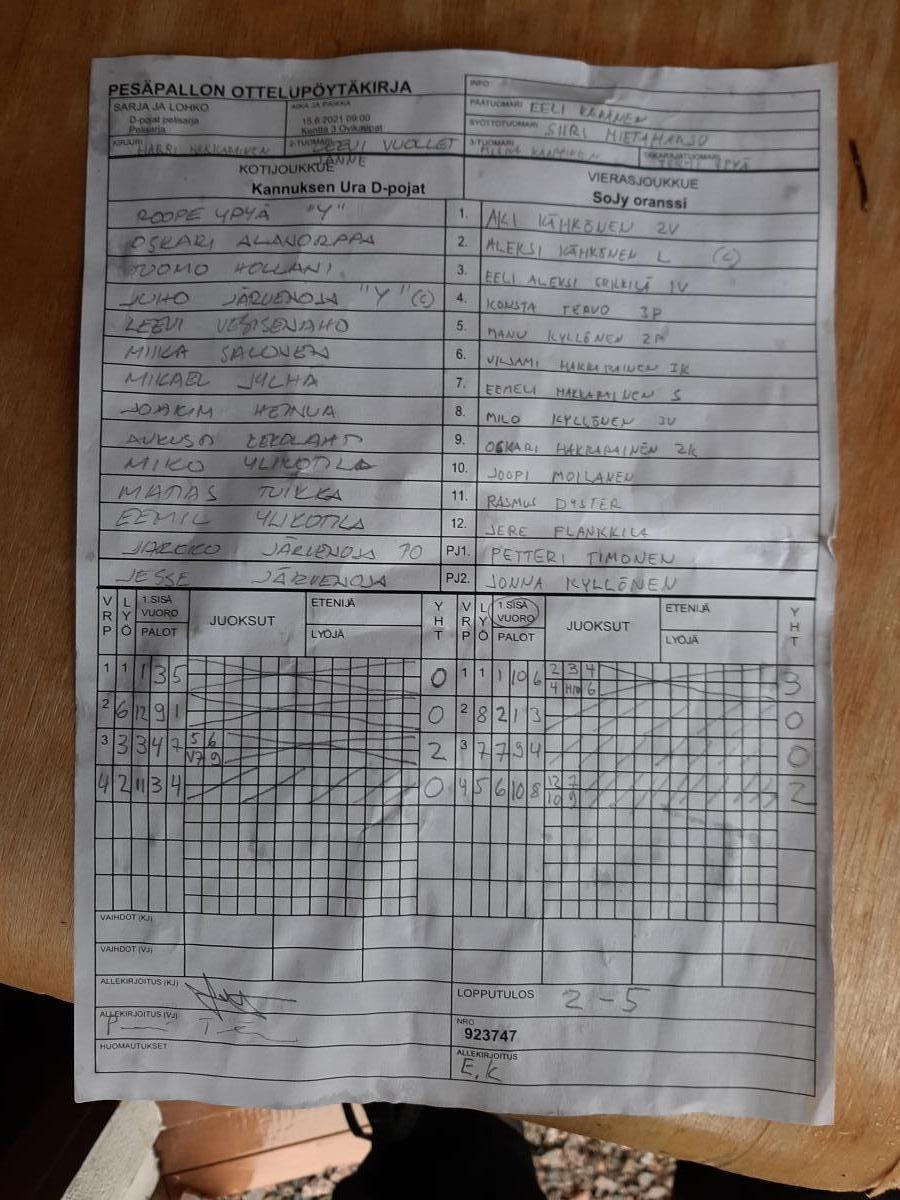 PESÄPALLON OTTELUPÖYTÄKIRJA
INFO
SARJA JA LOHKO
AIKA JA PAIKKA
PÄÄTUOMARI EELI
D-pojat pelisarja
15.6.2021 09:00
SYÖTTÖTUOMARI SIIRI
Pelisarja
Kenttä 3
KIRJURI HARRI
2-TUOMARI LEEVI VUOLLET
3-TUOMARI
TAKARAJATUOMARI
JANNE
KOTIJOUKKUE
VIERASJOUKKUE
Kannuksen Ura D-pojat
SoJy oranssi
ROOPE YPYÄ "Y" 1. AKI KÄHKÖNEN 2V
OSKARI ALANORPPA 2. ALEKSI KÄHKÖNEN L (C)
TUOMO HOLLANI 3. EELI ALEKSI ERKKILÄ 1V
JUHO JÄRVENOJA "Y" (C) 4. KONSTA TERVO 3P
LEEVI VESISENAHO 5. MANU KYLLÖNEN 2P
MIIKA SALONEN 6. VILJAMI HAKKARAINEN 1K
MIKAEL JYLHÄ 7. EEMELI HAKKARAINEN S
JOAKIM 8. MILO KYLLÖNEN 3V
AUKUSTI KEKOLAHTI 9. OSKARI HAKKARAINEN 2K
MIKO YLIKOTILA 10. JOOPI MOILANEN
MATIAS TUIKKA 11. RASMUS DYSTER
EEMIL YLIKOTILA 12. JERE PLANKKILA
JARKKO JÄRVENOJA PJ1. PETTERI TIMONEN
JESSE JÄRVENOJA PJ2. JONNA KYLLÖNEN
VRP LYÖ 1.SISÄ VUORO PALOT JUOKSUT ETENIJÄ LYÖJÄ YHT VRP LYÖ 1.SISÄ VUORO PALOT JUOKSUT ETENIJÄ LYÖJÄ YHT
1 1 1 3 5 0 1 1 1 10 6 2 3 4 3
4 HM 6
2 6 12 9 1 0 2 8 2 1 3 0
3 3 3 4 7 5 6 2 3 7 7 9 4 0
V7 9
4 2 11 3 4 0 4 5 6 10 8 12 7 2
10 9
VAIHDOT (KJ)
VAIHDOT (VJ)
ALLEKIRJOITUS (KJ)
LOPPUTULOS 2-5
ALLEKIRJOITUS (VJ)
NRO
923747
HUOMAUTUKSET
ALLEKIRJOITUS
E.K